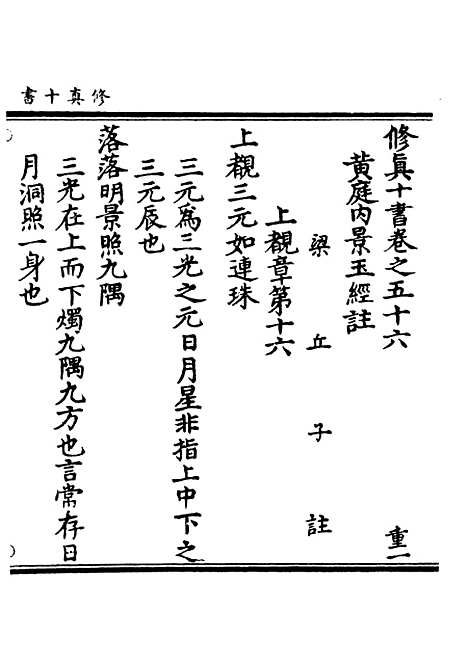 修真十書
修真十書卷之五十六 重一
黄庭内景玉經註
梁丘子註
上覩章第十六
上覩三元如連珠
三元爲三光之元日月星非指上中下之
三元辰也
落落明景照九隅
三光在上而下燭九隅九方也言常存日
月洞照一身也